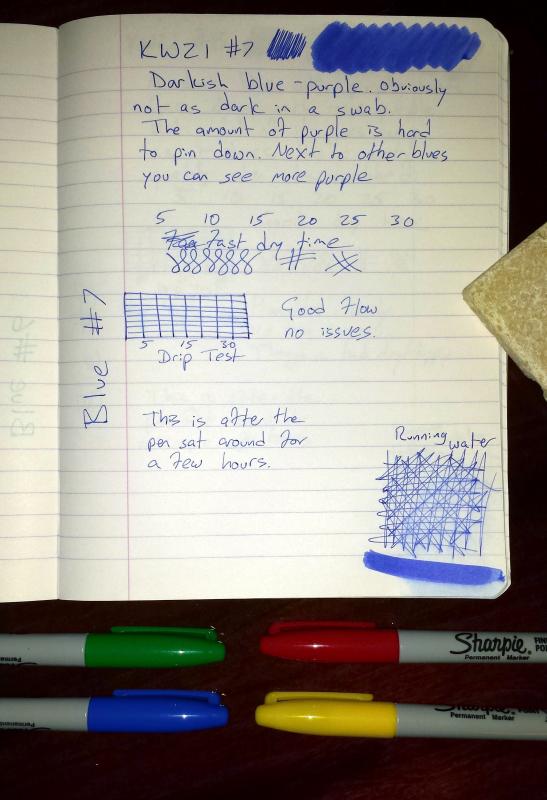 KWZI #7
Darkish blue-purple. Obviously
not as dark in a swab.
The amount of purple is hard
to pin down. Next to other blues
you can see more purple
5 10 15 20 25 30
Fast dry time
Good flow
no issues.
5 15 30
Drip Test
Blue #7
This is after the
pen sat around for
a few hours.
Running water
Blue #6
Sharpie. FINE
Permanent Marker POI
Sharpie
Permanent Marker
Permanent